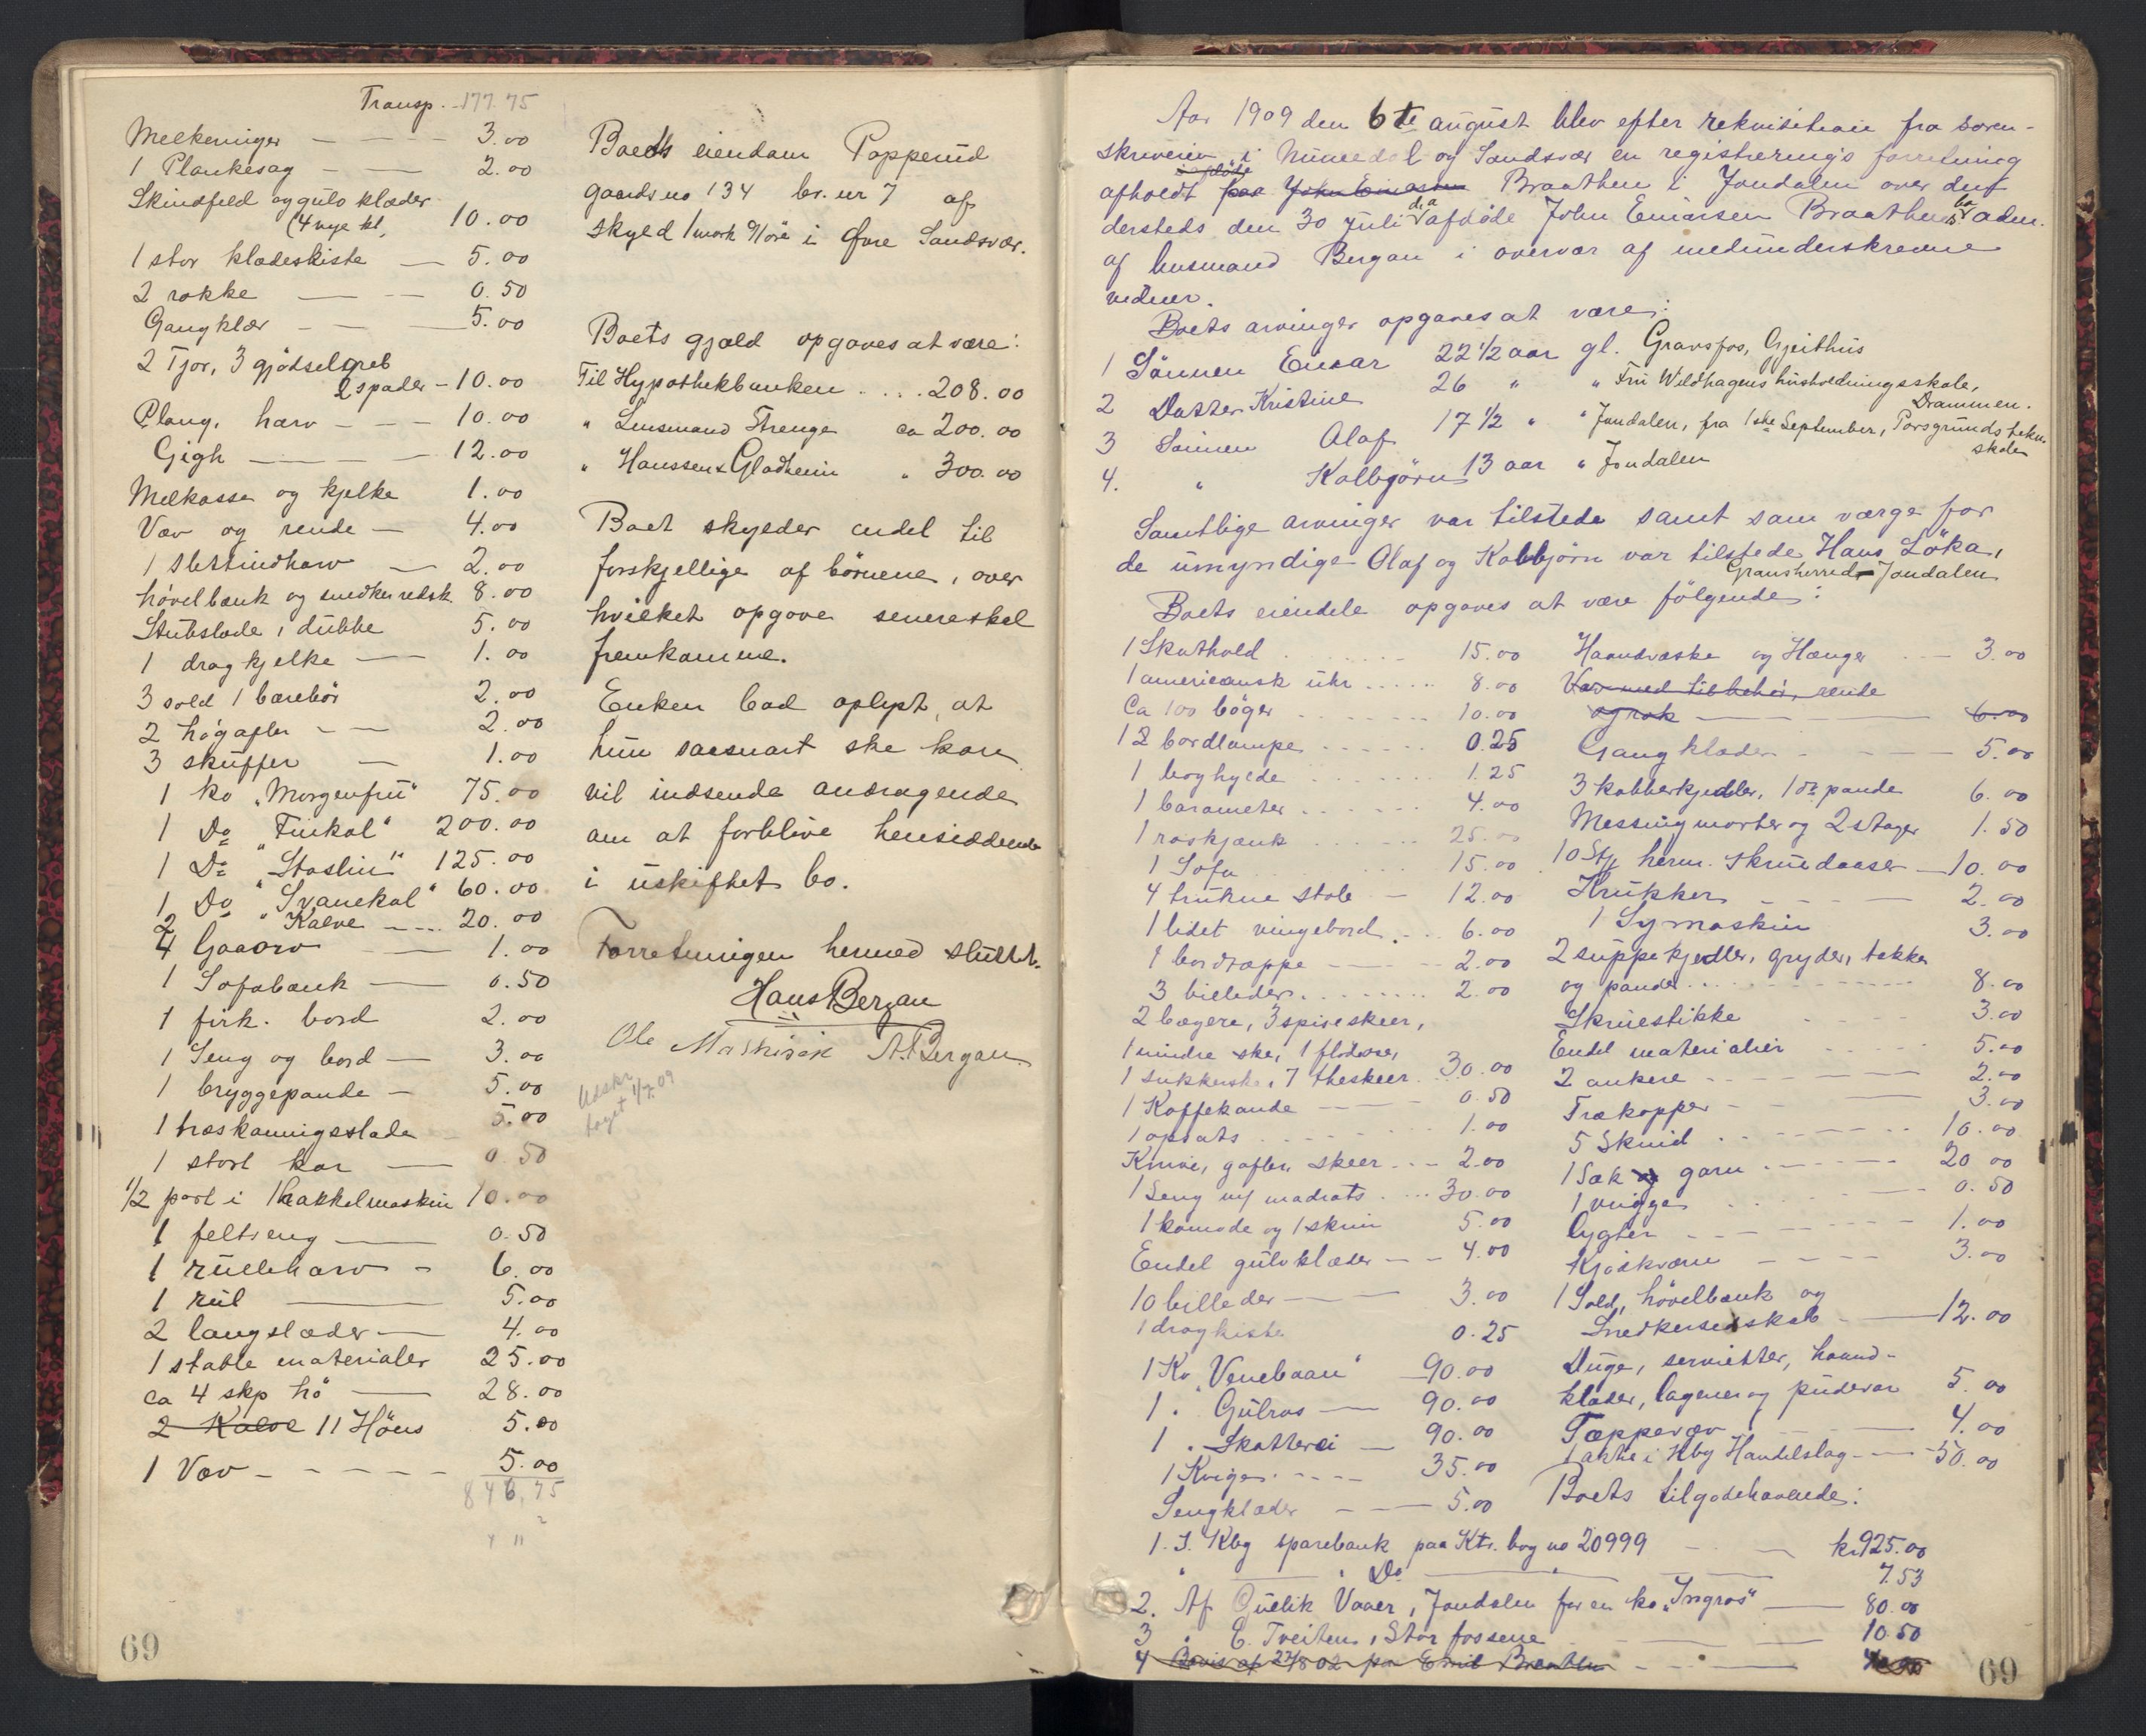 Transp. 177.75
Melkeringer — — — 3.00
1 Plankesag — — 2.00
Skindfeld og gulv klæder
(4 nye kl, 10.00
1 stor klædeskiste — 5.00
2 rokke — — — 0.50
Gangklær — — — 5.00
2 Tjor, 3 gjødselgreb
2 spader – 10.00
Ploug, harv – – – 10.00
Gigh — — — 12.00
Melkasse og kjelke 1.00
Væv og rende — 4.00
1 Slettindharv — 2.00
høvelbænk og snedkerredsk 8.00
Stubslæde, dubbe 5.00
1 dragkjelke — 1.00
3 sold 1 bærebör 2.00
2 högafler – — 2.00
3 skuffer — 1.00
1 ko "Morgenfru" 75.00
1 Do "Finkol" 200.00
1 Do "Staslin" 125.00
1 Do "Svanekol" 60.00
2 " Kalve — 20.00
4 Gaaorv — 1.00
1 Sofabænk — 0.50
1 firk. bord 2.00
1 Seng og bord — 3.00
1 bryggepande — 5.00
1 træskoningsslæde – 5.00
1 stort kar — 0.50
1/2 part i 1 hakkelmaskin 10.00
1 feltseng — 0.50
1 rulleharv – 6.00
1 rul — 5.00
2 langslæder — 4.00
1 stable materialer 25.00
ca 4 skp hö — 28.00
2 Kalve 11 Höns 5.00
1 Væv – – – – – 5.00
846,75
69
Boets eiendom Popperud
gaards no 134 br. nr 7 af
skyld 1 mark 91 öre i Øvre Sandsvær.
Boets gjæld opgaves at være:
Til Hypothekbanken . . . . 208.00
" Lensmand Strenge ca 200.00
" Hanssen & Gladheim " 300.00
Boet skylder endel til
forskjellige af börnene, over
hvilket opgave senere skal
fremkomme.
Enken bad oplyst, at
hun saasnart ske kan
vil indsende andragende
om at forblive hensiddende
i uskiftet bo.
Forretningen hermed sluttet.
Hans Bergan
Ole A. Bergan
Udskr.
taget 1/7.09
Aar 1909 den 6te august blev efter rekvisition fra Soren-
skriveren i Numedal og Sandsvær en registreringsforretning
afholdt paa John Einarsen Braathen i Jondalen over den
dersteds den 30 Juli d.a afdöde John Einarsen Braathens bo aden.
af husmand Bergan i overvær af medunderskrevne
vidner.
Boets arvinger opgaves at være:
1 Sönnen Einar 22 1/2 aar gl. Gravsfos, Gjeithus
2 Datter Kristine 26 " " Fru Wildhagens husholdningsskole,
Drammen.
3 Sönnen Olaf 17 1/2 " " Jondalen, fra 1ste September, Porsgrunds tekn.
skole
4. " Kolbjörn 13 aar " Jondalen
Samtlige arvinger var tilstede samt som værge for
de umyndige Olaf og Kolbjörn var tilstede Hans Löka,
Gransherred – Jondalen
Boets eiendele opgaves at være fölgende:
1 Skathold . . . . 15.00
1 americansk uhr . . . . . 8.00
Ca 100 böger . . . . . 10.00
1 2 bordlampe . . . . . 0.25
1 boghylde . . . . . 1.25
1 barameter . . . . . 4.00
1 roskjænk . . . . . 25.00
1 Sofa 15.00
4 trukne stole – 12.00
1 lidet vingebord . . . 6.00
1 bordtæppe — — 2.00
3 billeder . . . . . . 2.00
2 bægere, 3 spiseskeer,
1 mindre ske, 1 flödeøse,
1 sukkerske, 7 theskeer . . 30.00
1 Kaffekande — — 0.50
1 opsats . . . . . 1.00
Knive, gafler, skeer . . – 2.00
1 Seng m/ madrats . . . . 30.00
1 komode og 1 skrin 5.00
Endel gulvklæder – – 4.00
10 billeder — — 3.00
1 dragkiste 0.25
1 Ko "Venebaan" — 90.00
1 " Gulros — 90.00
1 " Skatterei — 90.00
1 Kvige . – – – 35.00
Sengklæder — — 5.00
Haandvæske og Hænger . — 3.00
Væv med tilbehör, rende
og rok — — — 6.00
Gangklæder . – – — 5.00
3 kobberkjedler, 1 do pande 6.00
Messingmorter og 2 stager 1.50
10 Stk herm. skruedaaser — 10.00
Krukker – – – — 2.00
1 Symaskin 3.00
2 suppekjedler, gryder, takke
og pande . . . . . . . 8.00
Skruestikke . . . . 3.00
Endel materialier . . . . 5.00
2 ankere – – – — 2.00
Trækopper – – — 3.00
5 Skind . . . . . . 10.00
1 Sæk og garn . . . . . 20.00
1 vugge . . . . 0.50
Lygter – – – — 1.00
Kjödkværn — – – – 3.00
1 Sold, hövelbænk og
Snedkerredskab . — 12.00
Duge, servietter, haand-
klæder, lagener og pudevar 5.00
Tæppevæv . — 4.00
1 aktie i Kbg Handelslag – — 50.00
Boets tilgodehavende:
1. I. Kbg sparebank paa Ktr. bog no 20999 – — kr. 925.00
" — " Do — 7.53
2. Af Gullik Vaaer, Jondalen for en ko "Ingros" — 80.00
3 " E. Tveiten, Storfossene — — 10.50
4 Bevis af 27/8 02 paa Emil Braathen – — —
69